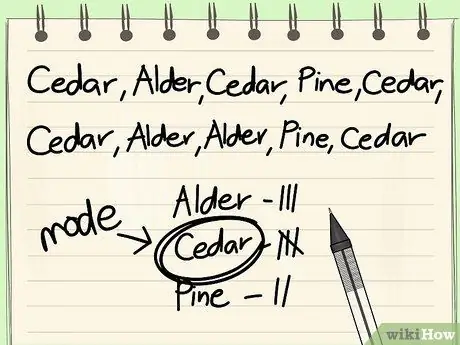 Cedar, Alder, Cedar, Pine, Cedar,
Cedar, Alder, Alder, Pine, Cedar
Alder - |||
mode
Cedar - 𝍸
Pine - ||
wikiHow